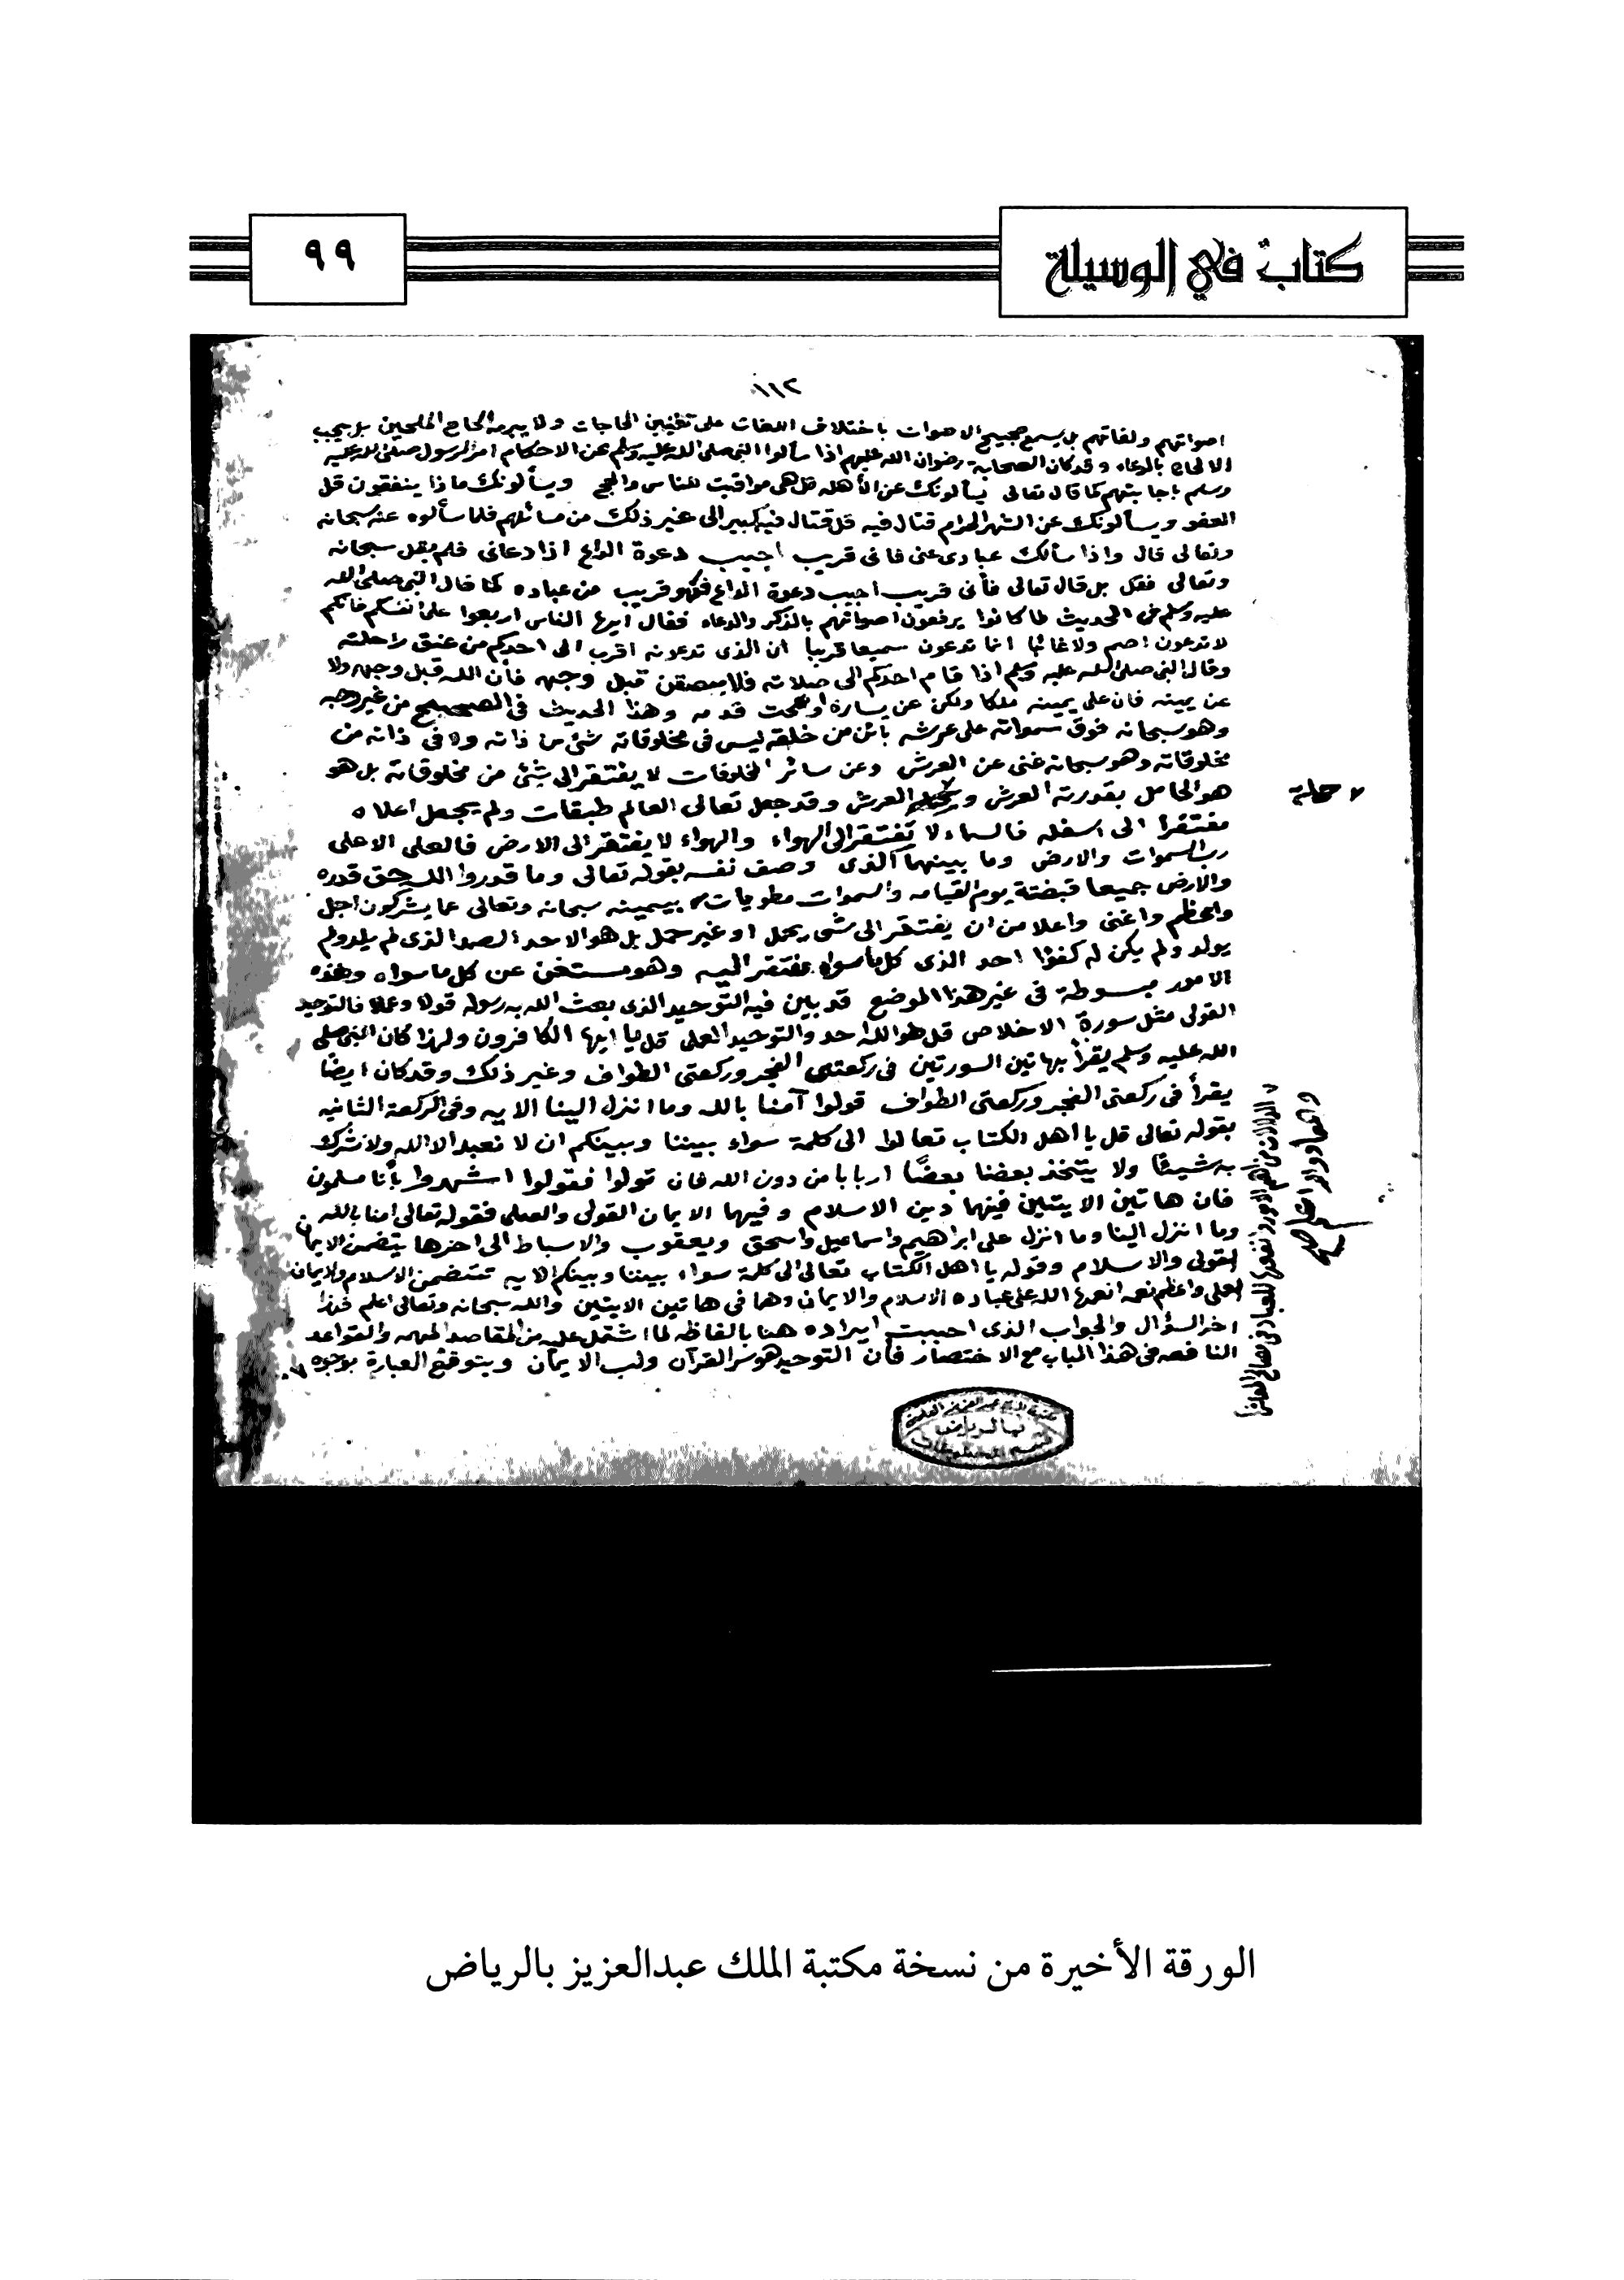 كتاب في الوسيلة
٩٩
١١٢
اصواتهم ولغاتهم بل يسمع ضجيج الاصوات باختلاف اللغات على تفنن الحاجات ولا يبرمه الحاح الملحين بل يحب
الالحاح بالدعاء وقد كان الصحابة رضوان الله عليهم اذا سألوا النبي صلى الله عليه وسلم عن الاحكام امر الرسول صلى الله عليه
وسلم باجابتهم كما قال تعالى يسألونك عن الأهله قل هي مواقيت للناس والحج ويسألونك ماذا ينفقون قل
العفو ويسألونك عن الشهر الحرام قتال فيه قل قتال فيه كبير الى غير ذلك من مسائلهم فلما سألوه عنه سبحانه
وتعالى قال واذا سألك عبادى عنى فانى قريب اجيب دعوة الداع اذا دعانى فلم يقل سبحانه
وتعالى فقل بل قال تعالى فأنى قريب اجيب دعوة الداع فهو قريب من عباده كما قال النبي صلى الله
عليه وسلم في الحديث لما كانوا يرفعون اصواتهم بالذكر والدعاء فقال ايها الناس اربعوا على انفسكم فانكم
لا تدعون اصم ولا غائبا انما تدعون سميعا قريبا ان الذى تدعونه اقرب الى احدكم من عنق راحلته
وقال النبي صلى الله عليه وسلم اذا قام احدكم الى صلاته فلا يبصقن قبل وجهه فان الله قبل وجهه ولا
عن يمينه فان على يمينه ملكا ولكن عن يساره او تحت قدمه وهذا الحديث في الصحيح من غير وجه
وهو سبحانه فوق سمواته على عرشه بائن من خلقه ليس في مخلوقاته شئ من ذاته ولا في ذاته من
مخلوقاته وهو سبحانه غنى عن العرش وعن سائر المخلوقات لا يفتقر الى شئ من مخلوقاته بل هو
هو الحامل بقدرته العرش و العرش وقد جعل تعالى العالم طبقات ولم يجعل اعلاه
حملة
مفتقرا الى اسفله فالسماء لا تفتقر الى الهواء والهواء لا يفتقر الى الارض فالعلى الاعلى
رب السموات والارض وما بينهما الذى وصف نفسه بقوله تعالى وما قدروا الله حق قدره
والارض جميعا قبضته يوم القيامه والسموات مطويات بيمينه سبحانه وتعالى عما يشركون اجل
واعظم واغنى واعلا من ان يفتقر الى شئ بحمل او غير حمل بل هو الاحد الصمد الذى لم يلد ولم
يولد ولم يكن له كفوًا احد الذى كل ما سواه مفتقر اليه وهو مستغن عن كل ما سواه وهذه
الامور مبسوطة في غير هذا الموضع قد بين فيه التوحيد الذى بعث الله به رسوله قولا وعملا فالتوحيد
القولى مثل سورة الاخلاص قل هو الله احد والتوحيد العملى قل يا ايها الكافرون ولهذا كان النبي صلى
الله عليه وسلم يقرأ بهاتين السورتين في ركعتى الفجر وركعتى الطواف وغير ذلك وقد كان ايضًا
يقرأ في ركعتى الفجر وركعتى الطواف قولوا آمنا بالله وما انزل الينا الايه وفي الركعة الثانيه
بقوله تعالى قل يا اهل الكتاب تعالوا الى كلمة سواء بيننا وبينكم ان لا نعبد الا الله ولا نشرك
به شيئًا ولا يتخذ بعضنا بعضًا اربابا من دون الله فان تولوا فقولوا اشهدوا بأنا مسلمون
فان هاتين الايتين فيهما دين الاسلام وفيهما الايمان القولى والعملى فقوله تعالى امنا بالله
وما انزل الينا وما انزل على ابراهيم واسماعيل واسحق ويعقوب والاسباط الى اخرها يتضمن الايمان
القولى والاسلام وقوله يا اهل الكتاب تعالى الى كلمة سواء بيننا وبينكم الايه تتضمن الاسلام والايمان
العملى واعظم نعمه انعمها الله على عباده الاسلام والايمان وهما في هاتين الايتين والله سبحانه وتعالى اعلم فهذا
اخر السؤال والجواب الذى احببت ايراده هنا بالفاظه لما اشتمل عليه من المقاصد المهمه والقواعد
النافعه في هذا الباب مع الاختصار فان التوحيد هو سر القرآن ولب الايمان وبتنويع العبارة بوجوه
الدلالات من اهم الامور وانفعها للعباد في مصالح المعاش
والمعاد والله اعلم
صح
بالرياض
الورقة الأخيرة من نسخة مكتبة الملك عبدالعزيز بالرياض